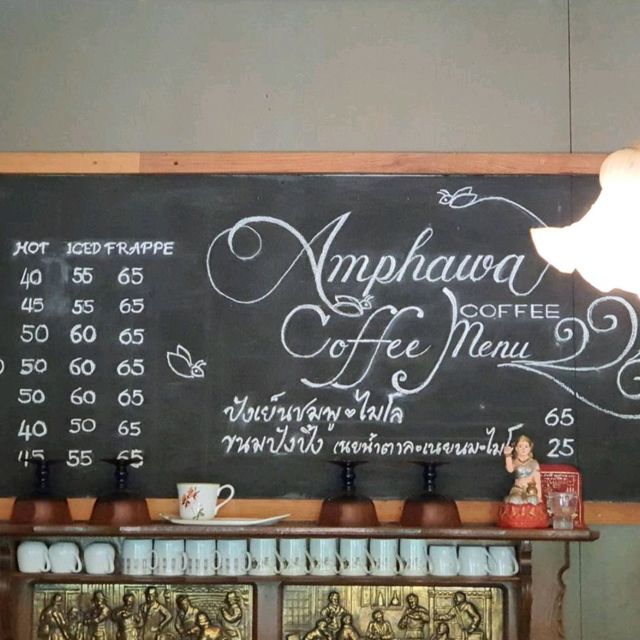 HOT ICED FRAPPE
40 55 65
45 55 65
50 60 65
50 60 65
50 60 65
40 50 65
45 55 65
Amphawa
COFFEE
Coffee Menu
ปังเย็นชมพู-ไมโล 65
ขนมปังปิ้ง เนยน้ำตาล-เนยนม-ไมโล 25